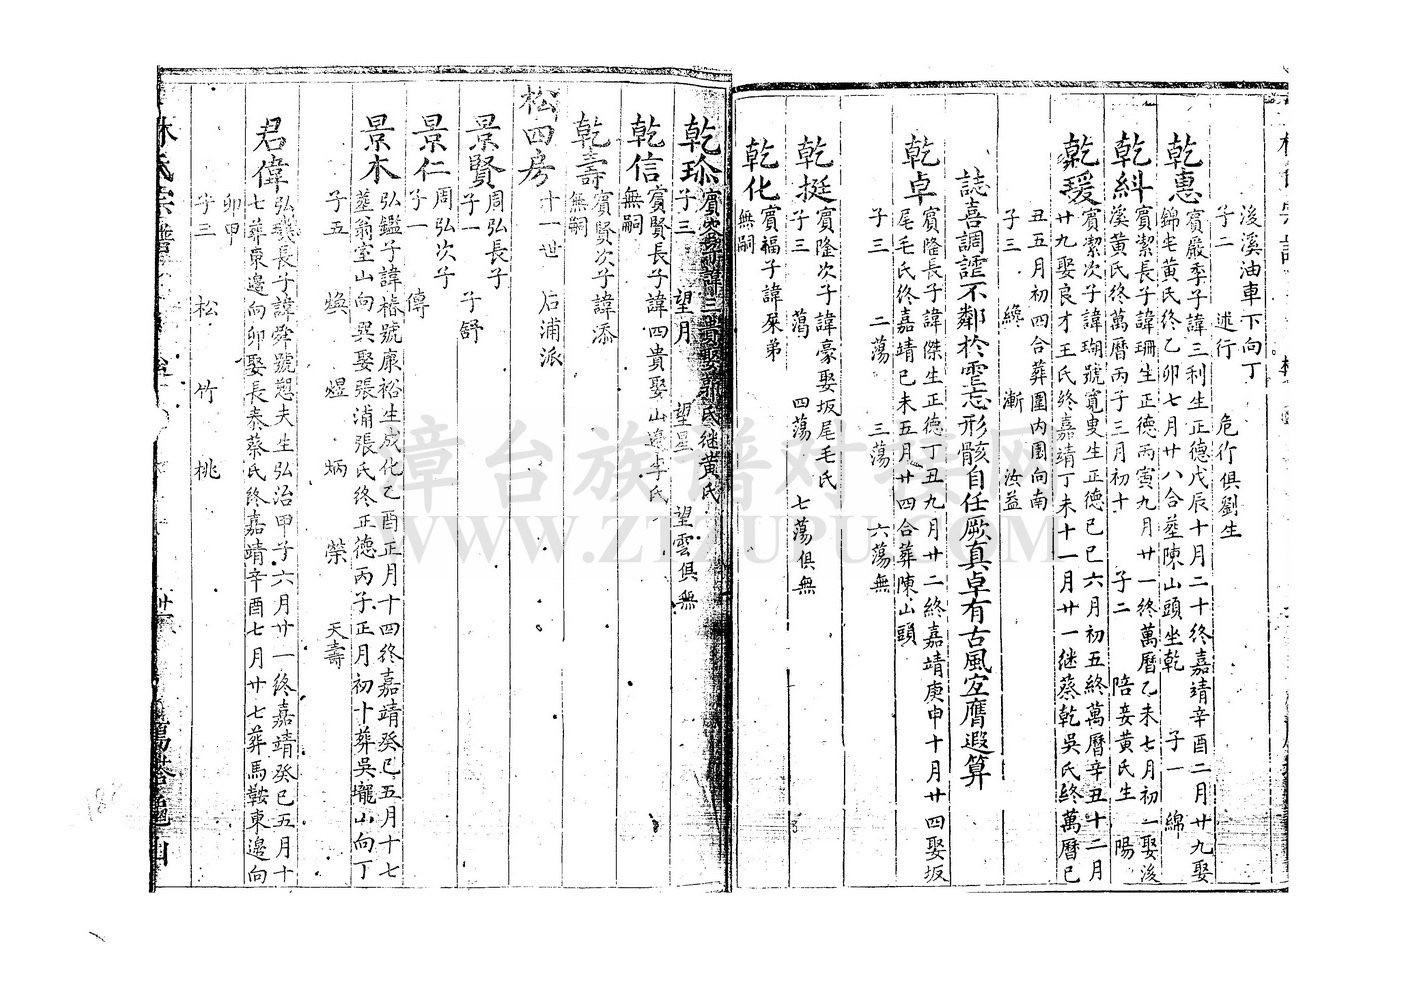 浚溪油車下向丁
子二 述行 危行俱劉生
乾惠
賓嚴季子諱三利生正德戊辰十月二十終嘉靖辛酉二月廿九娶
錦宅黃氏終乙卯七月廿八合塟陳山頭坐乾 子一 綿
乾糾
賓潔長子諱珊生正德丙寅九月廿一終萬曆乙未七月初一娶浚
溪黃氏終萬曆丙子三月初十 子二 陪妾黃氏生 陽
乾瑗
賓潔次子諱瑚號寬叟生正德己巳六月初五終萬曆辛丑十二月
廿九娶良才王氏終嘉靖丁未十一月廿一继蔡乾吳氏終萬曆己
丑五月初四合葬圍内圍向南
子三 漸 汝益
誌喜調謔不鄰於虐忘形骸自任厥真卓有古風宜膺遐算
乾卓
賓隆長子諱傑生正德丁丑九月廿二終嘉靖庚申十月廿四娶坂
尾毛氏終嘉靖己未五月廿四合葬陳山頭
子三 二蕩 三蕩 六蕩無
乾挺
賓隆次子諱豪娶坂尾毛氏
子三 蕩 四蕩 七蕩俱無
乾化
賓福子諱屎弟
無嗣
乾珎
子三 望月 望星 望雲俱無
乾信
賓賢長子諱四貴娶山邊李氏
無嗣
乾壽
賓賢次子諱添
無嗣
松四房
十一世 石浦派
景賢
周弘長子
子一 子舒
景仁
周弘次子
子一 傳
景木
弘鑑子諱椿號康裕生成化乙酉正月十四終嘉靖癸巳五月十七
塟翁室山向巽娶張浦張氏終正德丙子正月初十葬吳壠山向丁
子五 煥 煜 炳 榮 夭壽
君偉
長子諱舜號愬夫生弘治甲子六月廿一終嘉靖癸巳五月十
七葬東邊向卯娶長泰蔡氏終嘉靖辛酉七月廿七葬馬鞍東邊向
卯甲
子三 松 竹 桃
林氏宗譜
漳台族谱对接网
WWW.ZTZUPU.COM